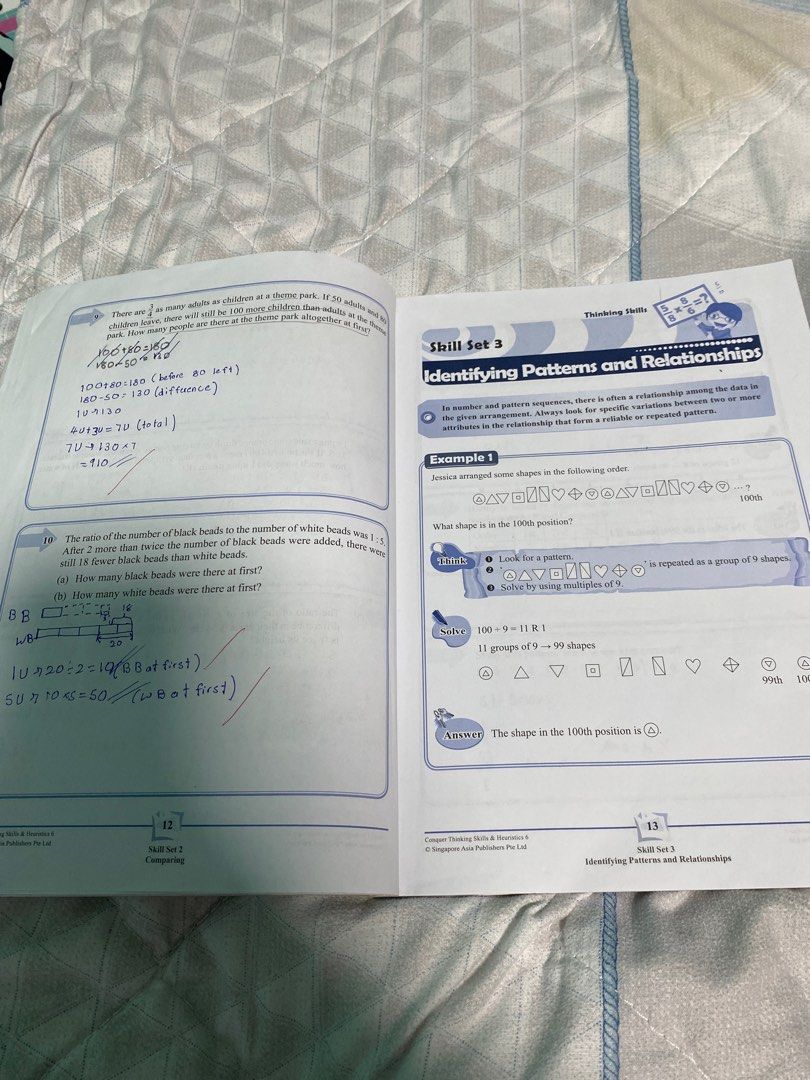 9. There are 3/4 as many adults as children at a theme park. If 50 adults and 80
children leave, there will still be 100 more children than adults at the theme
park. How many people are there at the theme park altogether at first?
100+80=180
180-50=130
100+80=180 (before 80 left)
180-50=130 (difference)
1U→130
4U+3U=7U (total)
7U→130×7
=910
10 The ratio of the number of black beads to the number of white beads was 1 : 5.
After 2 more than twice the number of black beads were added, there were
still 18 fewer black beads than white beads.
(a) How many black beads were there at first?
(b) How many white beads were there at first?
BB
18
WB
20
1U→20÷2=10 (BB at first)
5U→10×5=50 (WB at first)
12
g Skills & Heuristics 6
ia Publishers Pte Ltd
Skill Set 2
Comparing
Thinking Skills
Skill Set 3
Identifying Patterns and Relationships
In number and pattern sequences, there is often a relationship among the data in
the given arrangement. Always look for specific variations between two or more
attributes in the relationship that form a reliable or repeated pattern.
Example 1
Jessica arranged some shapes in the following order.
... ?
100th
What shape is in the 100th position?
Think
❶ Look for a pattern.
❷ ' ' is repeated as a group of 9 shapes.
❸ Solve by using multiples of 9.
Solve
100 ÷ 9 = 11 R 1
11 groups of 9 → 99 shapes
99th 100
Answer
The shape in the 100th position is .
13
Conquer Thinking Skills & Heuristics 6
© Singapore Asia Publishers Pte Ltd
Skill Set 3
Identifying Patterns and Relationships